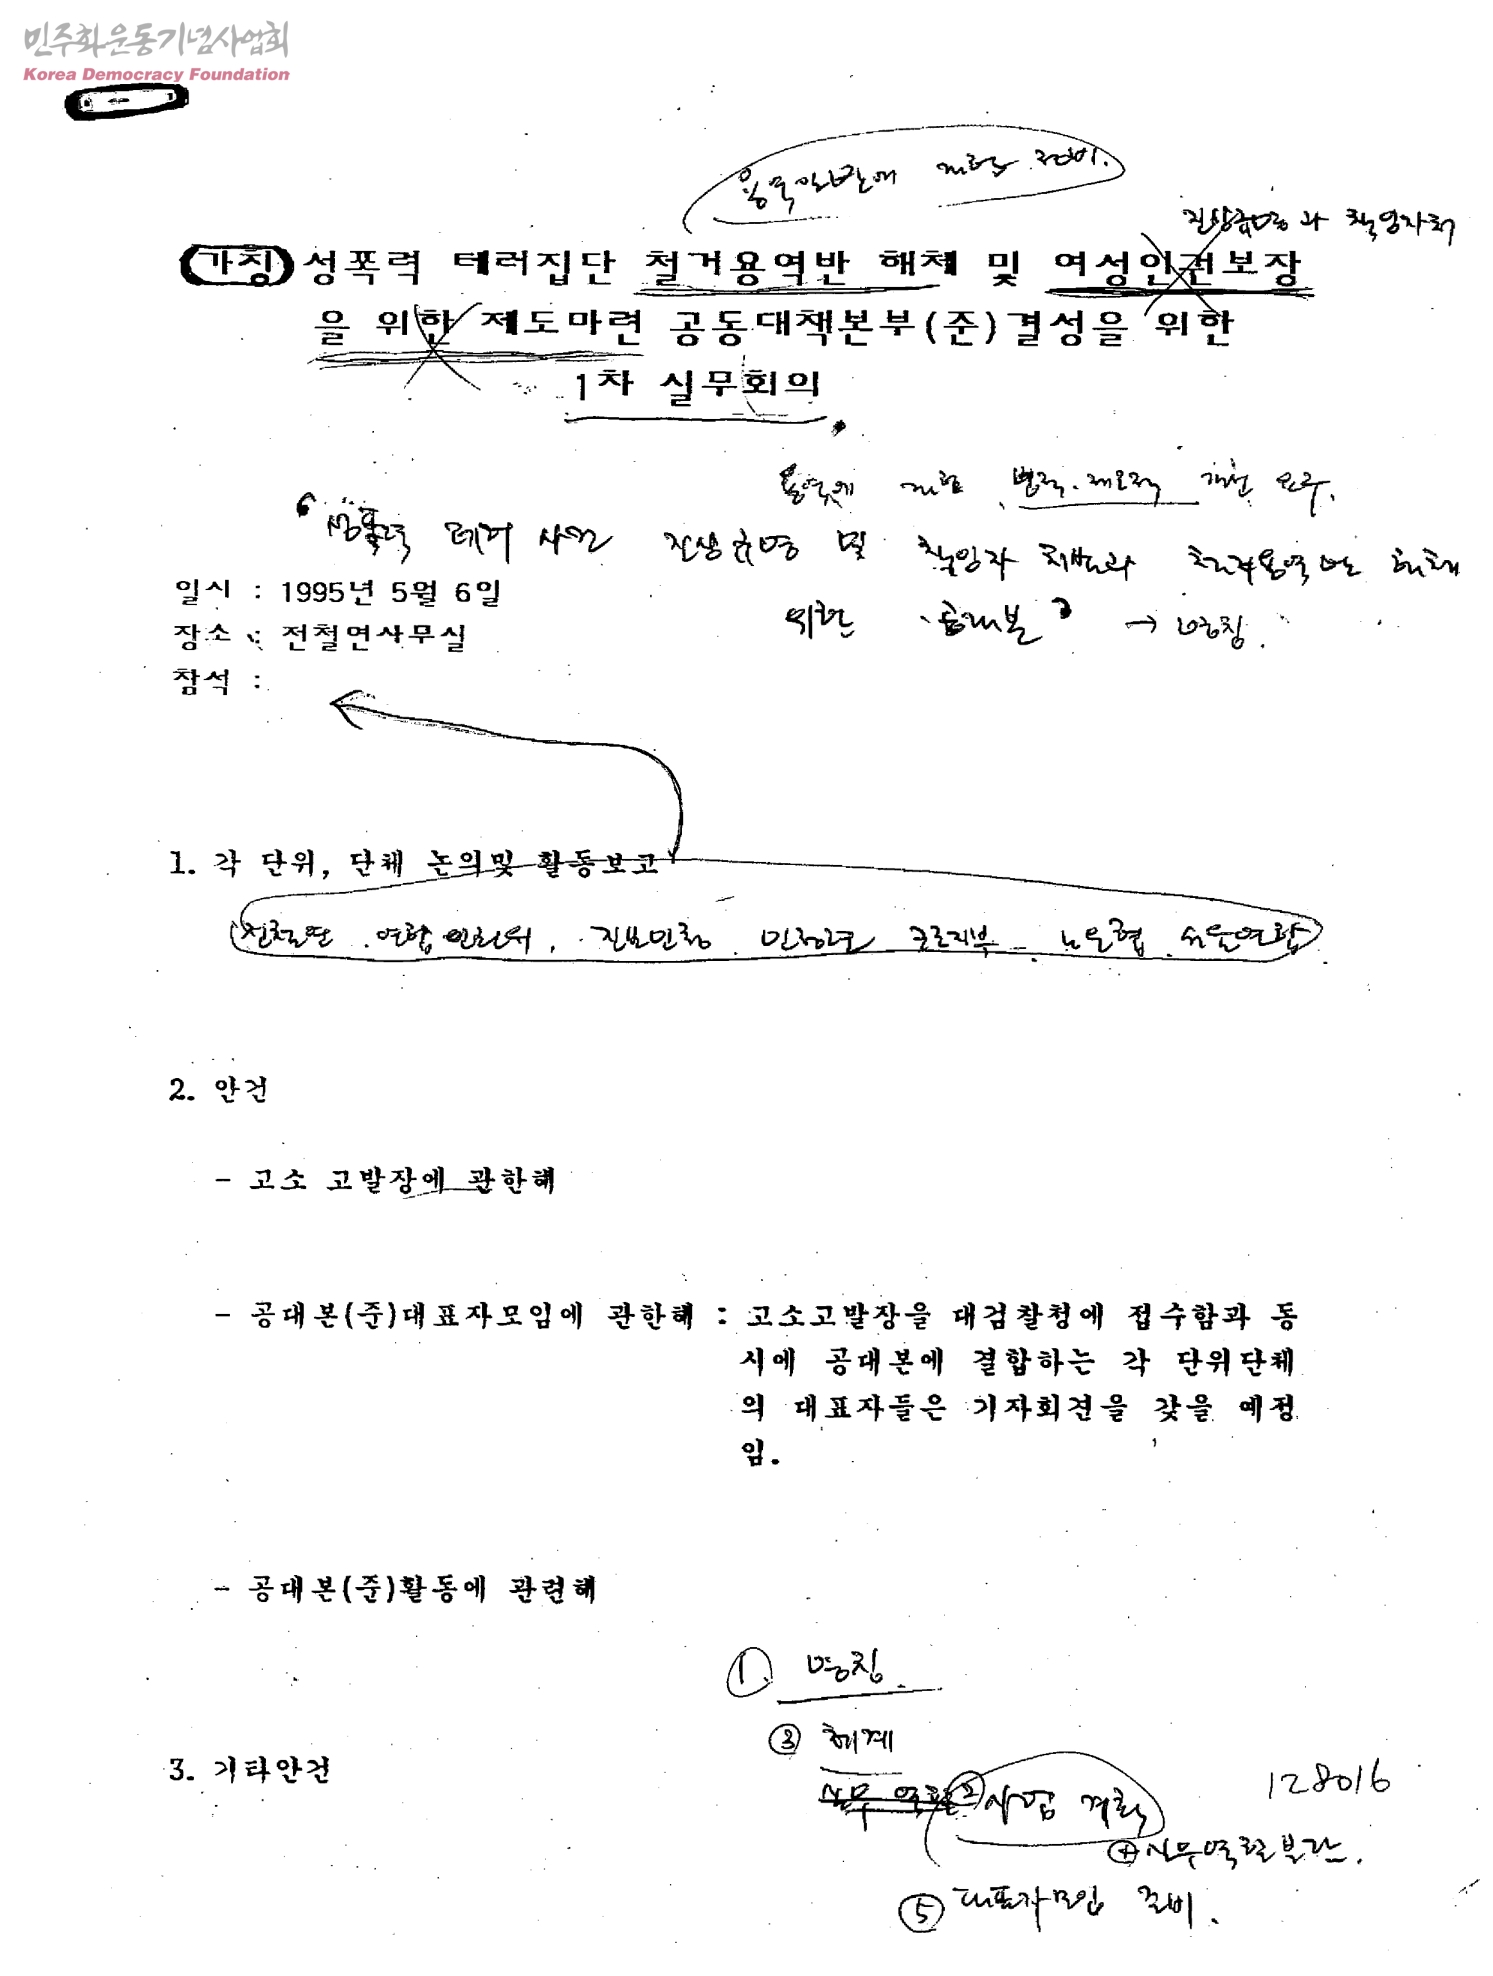 민주화운동기념사업회
Korea Democracy Foundation
진상규명과 책임자처
(가칭) 성폭력 테러집단 철거용역반 해체 및 여성인권보장
을 위한 제도마련 공동대책본부(준)결성을 위한
1차 실무회의
용역에 법적·제도적 개선 요구.
성폭력 테러 사건 진상규명 및 책임자 처벌과 철거용역반 해체
위한 공대본 → 명칭.
일시 : 1995년 5월 6일
장소 : 전철연사무실
참석 :
1. 각 단위, 단체 논의및 활동보고
전철연. 연합 인권위, 진보민청. 민청련 노운협. 서울연합
2. 안건
- 고소 고발장에 관한해
- 공대본(준)대표자모임에 관한해 : 고소고발장을 대검찰청에 접수함과 동
시에 공대본에 결합하는 각 단위단체
의 대표자들은 기자회견을 갖을 예정
임.
- 공대본(준)활동에 관련해
① 명칭.
③ 체계
3. 기타안건
실무 역할 ② 사업 계획
128016
④ 실무역할분담.
⑤ 대표자모임 준비.